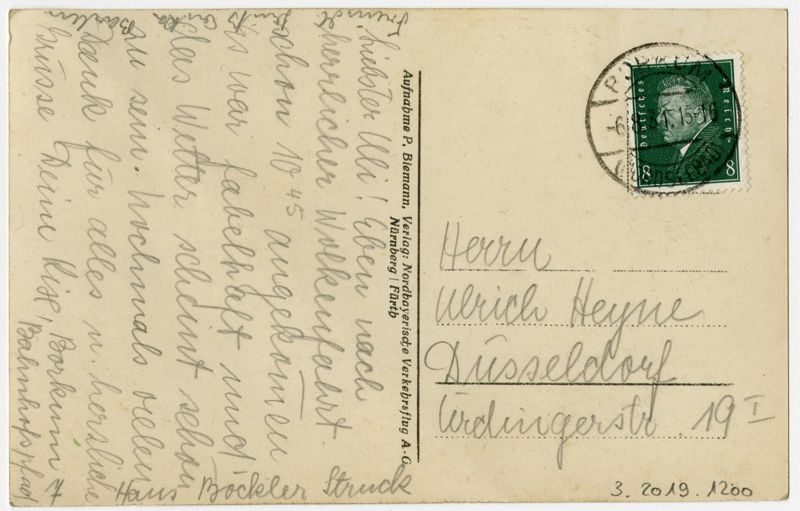 Liebster Uli! Eben nach
herrlicher Wolkenfahrt
schon 10 45 angekommen
Es war fabelhaft und
das Wetter scheint schön
zu sein. Nochmals vielen
Dank für alles u. herzliche
Grüsse Deine Lise, Borkum
Bahnhofspfad 7
Haus Böckler Struck
Aufnahme P. Biemann, Verlag: Nordbayerische Verkehrsflug A.-G.
Nürnberg / Fürth
BORKUM
15-16
(NORDSEEBAD)
Deutsches Reich
8 8
Herrn
Ulrich Heyne
Düsseldorf
Ürdingerstr. 19 I
3. 2019. 1200